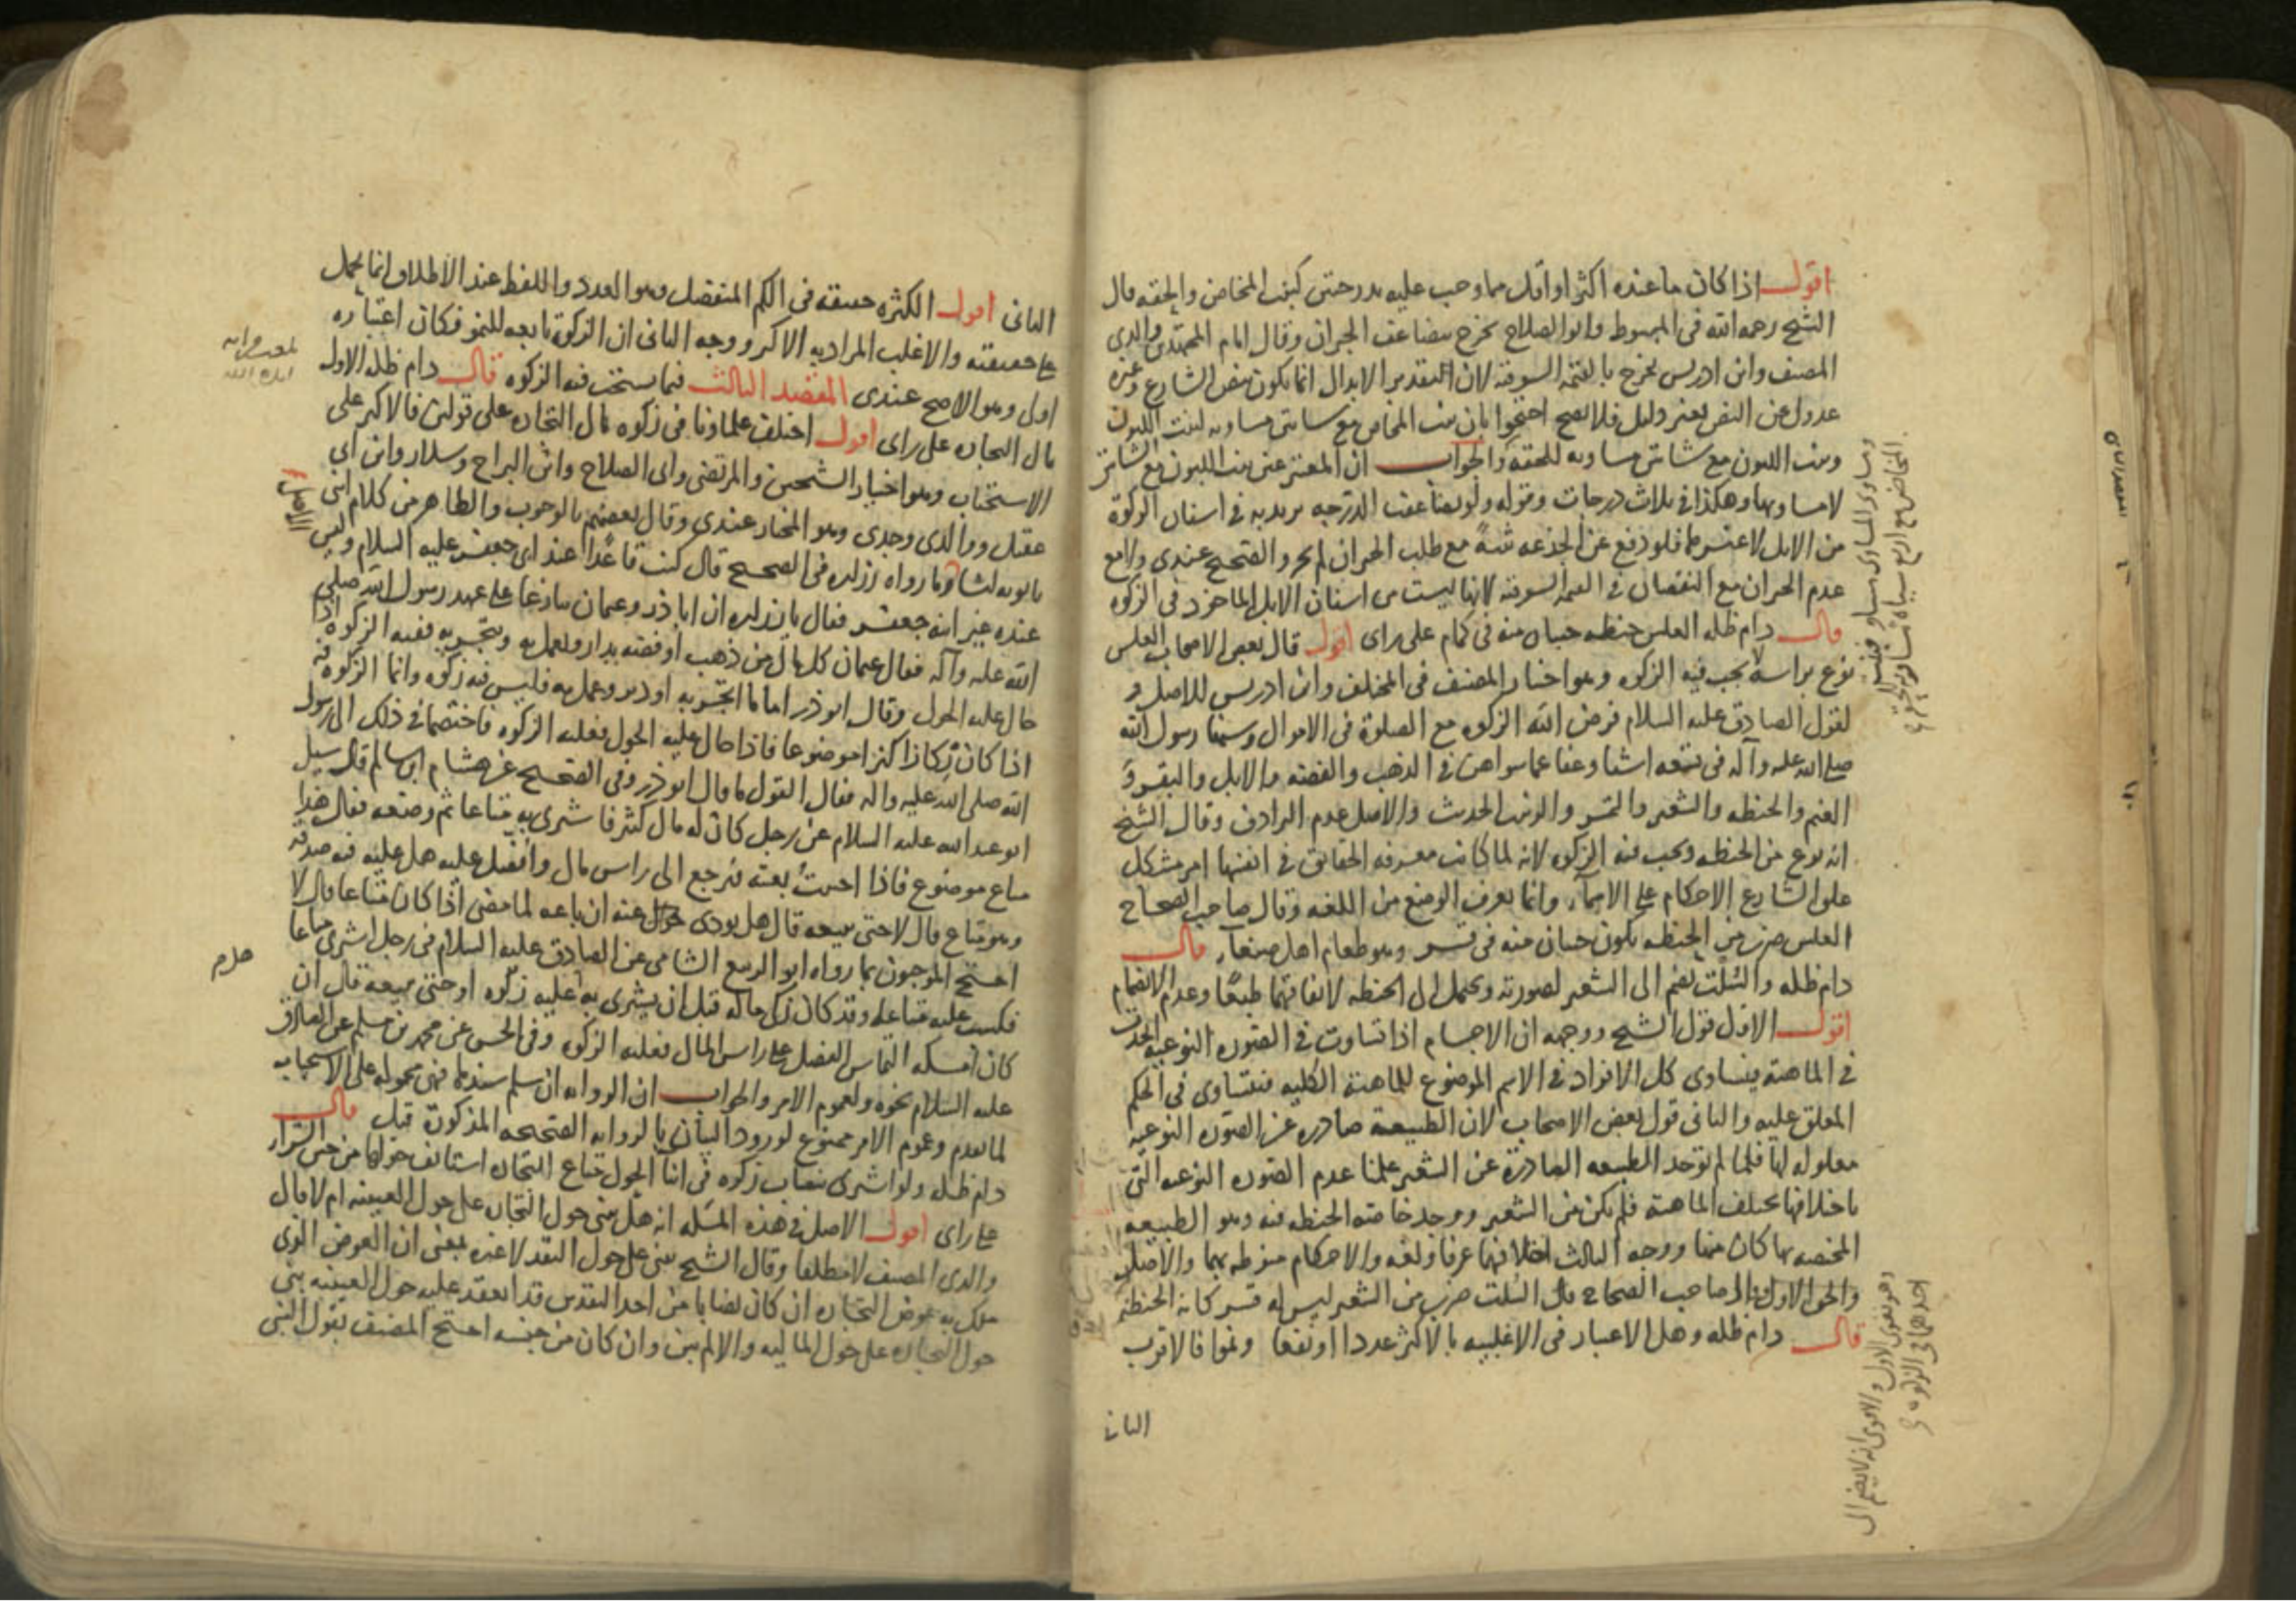 اقول اذا كان ما عنده اكثر او اقل مما وجب عليه بدرجتين كبنت المخاض والحقه قال
الشيخ رحمه الله فى المبسوط وابو الصلاح يخرج بتضاعف الجبران وقال امام المجتهدين والدى
المصنف وابن ادريس يخرج بالقيمة السوقية لان التقدير الابدال انما يكون بنص الشارع وغيره
عدول عن النص بغير دليل فلا يصح احتجوا بان بنت المخاض مع شاتين مساويه لبنت اللبون
وبنت اللبون مع شاتين مساويه للحقه والجواب ان المعتبر عين بنت اللبون مع الشاتين
لا مساويها وهكذا فى ثلاث درجات وقوله ولو تضاعفت الدرجه يريد به فى اسنان الزكوة
من الابل لا غير فلو دفع عن الجذعه ثنية مع طلب الجبران لم يجز والصحيح عندى ولا مع
عدم الجبران مع النقصان فى القيمة السوقية لانها ليست من اسنان الابل الماخوذ فى الزكوة
قال دام ظله العلس حنطه حبتان منه فى كمام على راى اقول قال بعض الاصحاب العلس
نوع براسه لا يجب فيه الزكوه وهو اختيار المصنف فى المختلف وابن ادريس للاصل و
لقول الصادق عليه السلام فرض الله الزكوه مع الصلوة فى الاموال وسنها رسول الله
صلى الله عليه وآله فى تسعه اشيا وعفا عما سواهن فى الذهب والفضه والابل والبقر و
الغنم والحنطه والشعير والتمر والزبيب الحديث والاصل عدم الترادف وقال الشيخ
انه نوع من الحنطه ويجب فيه الزكوه لانه لما كانت معرفه الحقايق فى انفسها امر مشكل
علق الشارع الاحكام على الاسماء وانما يعرف الوضع من اللغه وقال صاحب الصحاح
العلس ضرب من الحنطه يكون حبتان منه فى قشر وهو طعام اهل صنعاء قال
دام ظله والسلت يضم الى الشعير لصورته ويحتمل الى الحنطه لاتفاقهما طبعا وعدم الانضمام
اقول الاول قول الشيخ ووجهه ان الاجسام اذا تساوت فى الصوره النوعيه اتحدت
فى الماهية فيتساوى كل الافراد فى الاسم الموضوع للماهية الكليه فتتساوى فى الحكم
المعلق عليه والثانى قول بعض الاصحاب لان الطبيعة صادره عن الصوره النوعيه
معلوله لها فلما لم توجد الطبيعه الصادرة عن الشعير علمنا عدم الصوره النوعيه التى
باختلافها تختلف الماهية فلم يكن من الشعير ووجد خاصة الحنطه فيه وهو الطبيعه
المختصه بها كان منها ووجه الثالث اختلافهما عرفا ولغه والاحكام منوطه بهما والاصل
والحق الاول قال صاحب الصحاح قال السلت ضرب من الشعير ليس له قشر كانه الحنطه
قال دام ظله وهل الاعتبار فى الاغلبيه بالاكثر عددا او نفعا ونموا فالاقرب
الثانى
ويساوى المساوى مساو فبنت
المخاض مع اربع شياه مساويه للحقه
وهو يقوى الاول والاقوى انه لا يضم الى
احدهما فى الزكوه
الثانى اقول الكثره حقيقه فى الكم المنفصل وهو العدد واللفظ عند الاطلاق انما يحمل
على حقيقته والاغلب المراد به الاكثر ووجه الثانى ان الزكوة تابعه للنمو فكان اعتباره
اولى وهو الاصح عندى المقصد الثالث فيما يستحب فيه الزكوه قال دام ظله الاول
مال التجاره على راى اقول اختلف علماونا فى زكوه مال التجاره على قولين فالاكثر على
الاستحباب وهو اختيار الشيخين والمرتضى وابى الصلاح وابن البراج وسلار وابن ابى
عقيل ووالدى وجدى وهو المختار عندى وقال بعضهم بالوجوب والظاهر من كلام ابنى
بابويه لنا ما رواه زراره فى الصحيح قال كنت قاعدا عند ابى جعفر عليه السلام وليس
عنده غير ابنه جعفر فقال يا زراره ان ابا ذر وعثمان تنازعا على عهد رسول الله صلى
الله عليه وآله فقال عثمان كل مال من ذهب او فضه يدار ويعمل به ويتجر به ففيه الزكوه اذا
حال عليه الحول وقال ابو ذر اما ما اتجر به او دير وعمل به فليس فيه زكوه وانما الزكوه فيه
اذا كان ركازا كنزا موضوعا فاذا حال عليه الحول فعليه الزكوه فاختصما فى ذلك الى رسول
الله صلى الله عليه واله فقال القول ما قال ابو ذر وفى الصحيح عن هشام ابن سالم قال سيل
ابو عبد الله عليه السلام عن رجل كان له مال كثير فاشترى به متاعا ثم وضعه فقال هذا
متاع موضوع فاذا احببت بعته فيرجع الى راس مال وافضل عليه هل عليه فيه صدقه
وهو متاع قال لا حتى يبيعه قال هل يودى عنه ان باعه لما مضى اذا كان متاعا قال لا
احتج الموجبون بما رواه ابو الربيع الشامى عن الصادق عليه السلام فى رجل اشترى متاعا
فكسد عليه متاعه وقد كان زكى ماله قبل ان يشترى به اعليه زكوه او حتى يبيعه قال ان
كان امسكه التماس الفضل على راس المال فعليه الزكوه وفى الحسن عن محمد بن مسلم عن الصادق
عليه السلام نحوه ولعموم الامر والجواب ان الروايه ان سلم سندها فهى محموله على الاستحباب
لما تقدم وعموم الامر ممنوع لورود البيان بالروايه الصحيحه المذكورة قبل قال
دام ظله ولو اشترى بنصاب زكوه فى اثنا الحول متاع التجاره استانف حولها من حين الشراء
على راى اقول الاصل فى هذه المسله انه هل يبنى حول التجاره على حول العينيه ام لا قال
والدى المصنف لا مطلقا وقال الشيخ يبنى على حول النقد لا غيره بمعنى ان العوض الذى
ملك به عوض التجاره ان كان نصابا من احد النقدين قد انعقد عليه حول العينيه بنى
حول التجاره على حول الماليه والا لم يبن وان كان من جنسه احتج المصنف بقول النبى